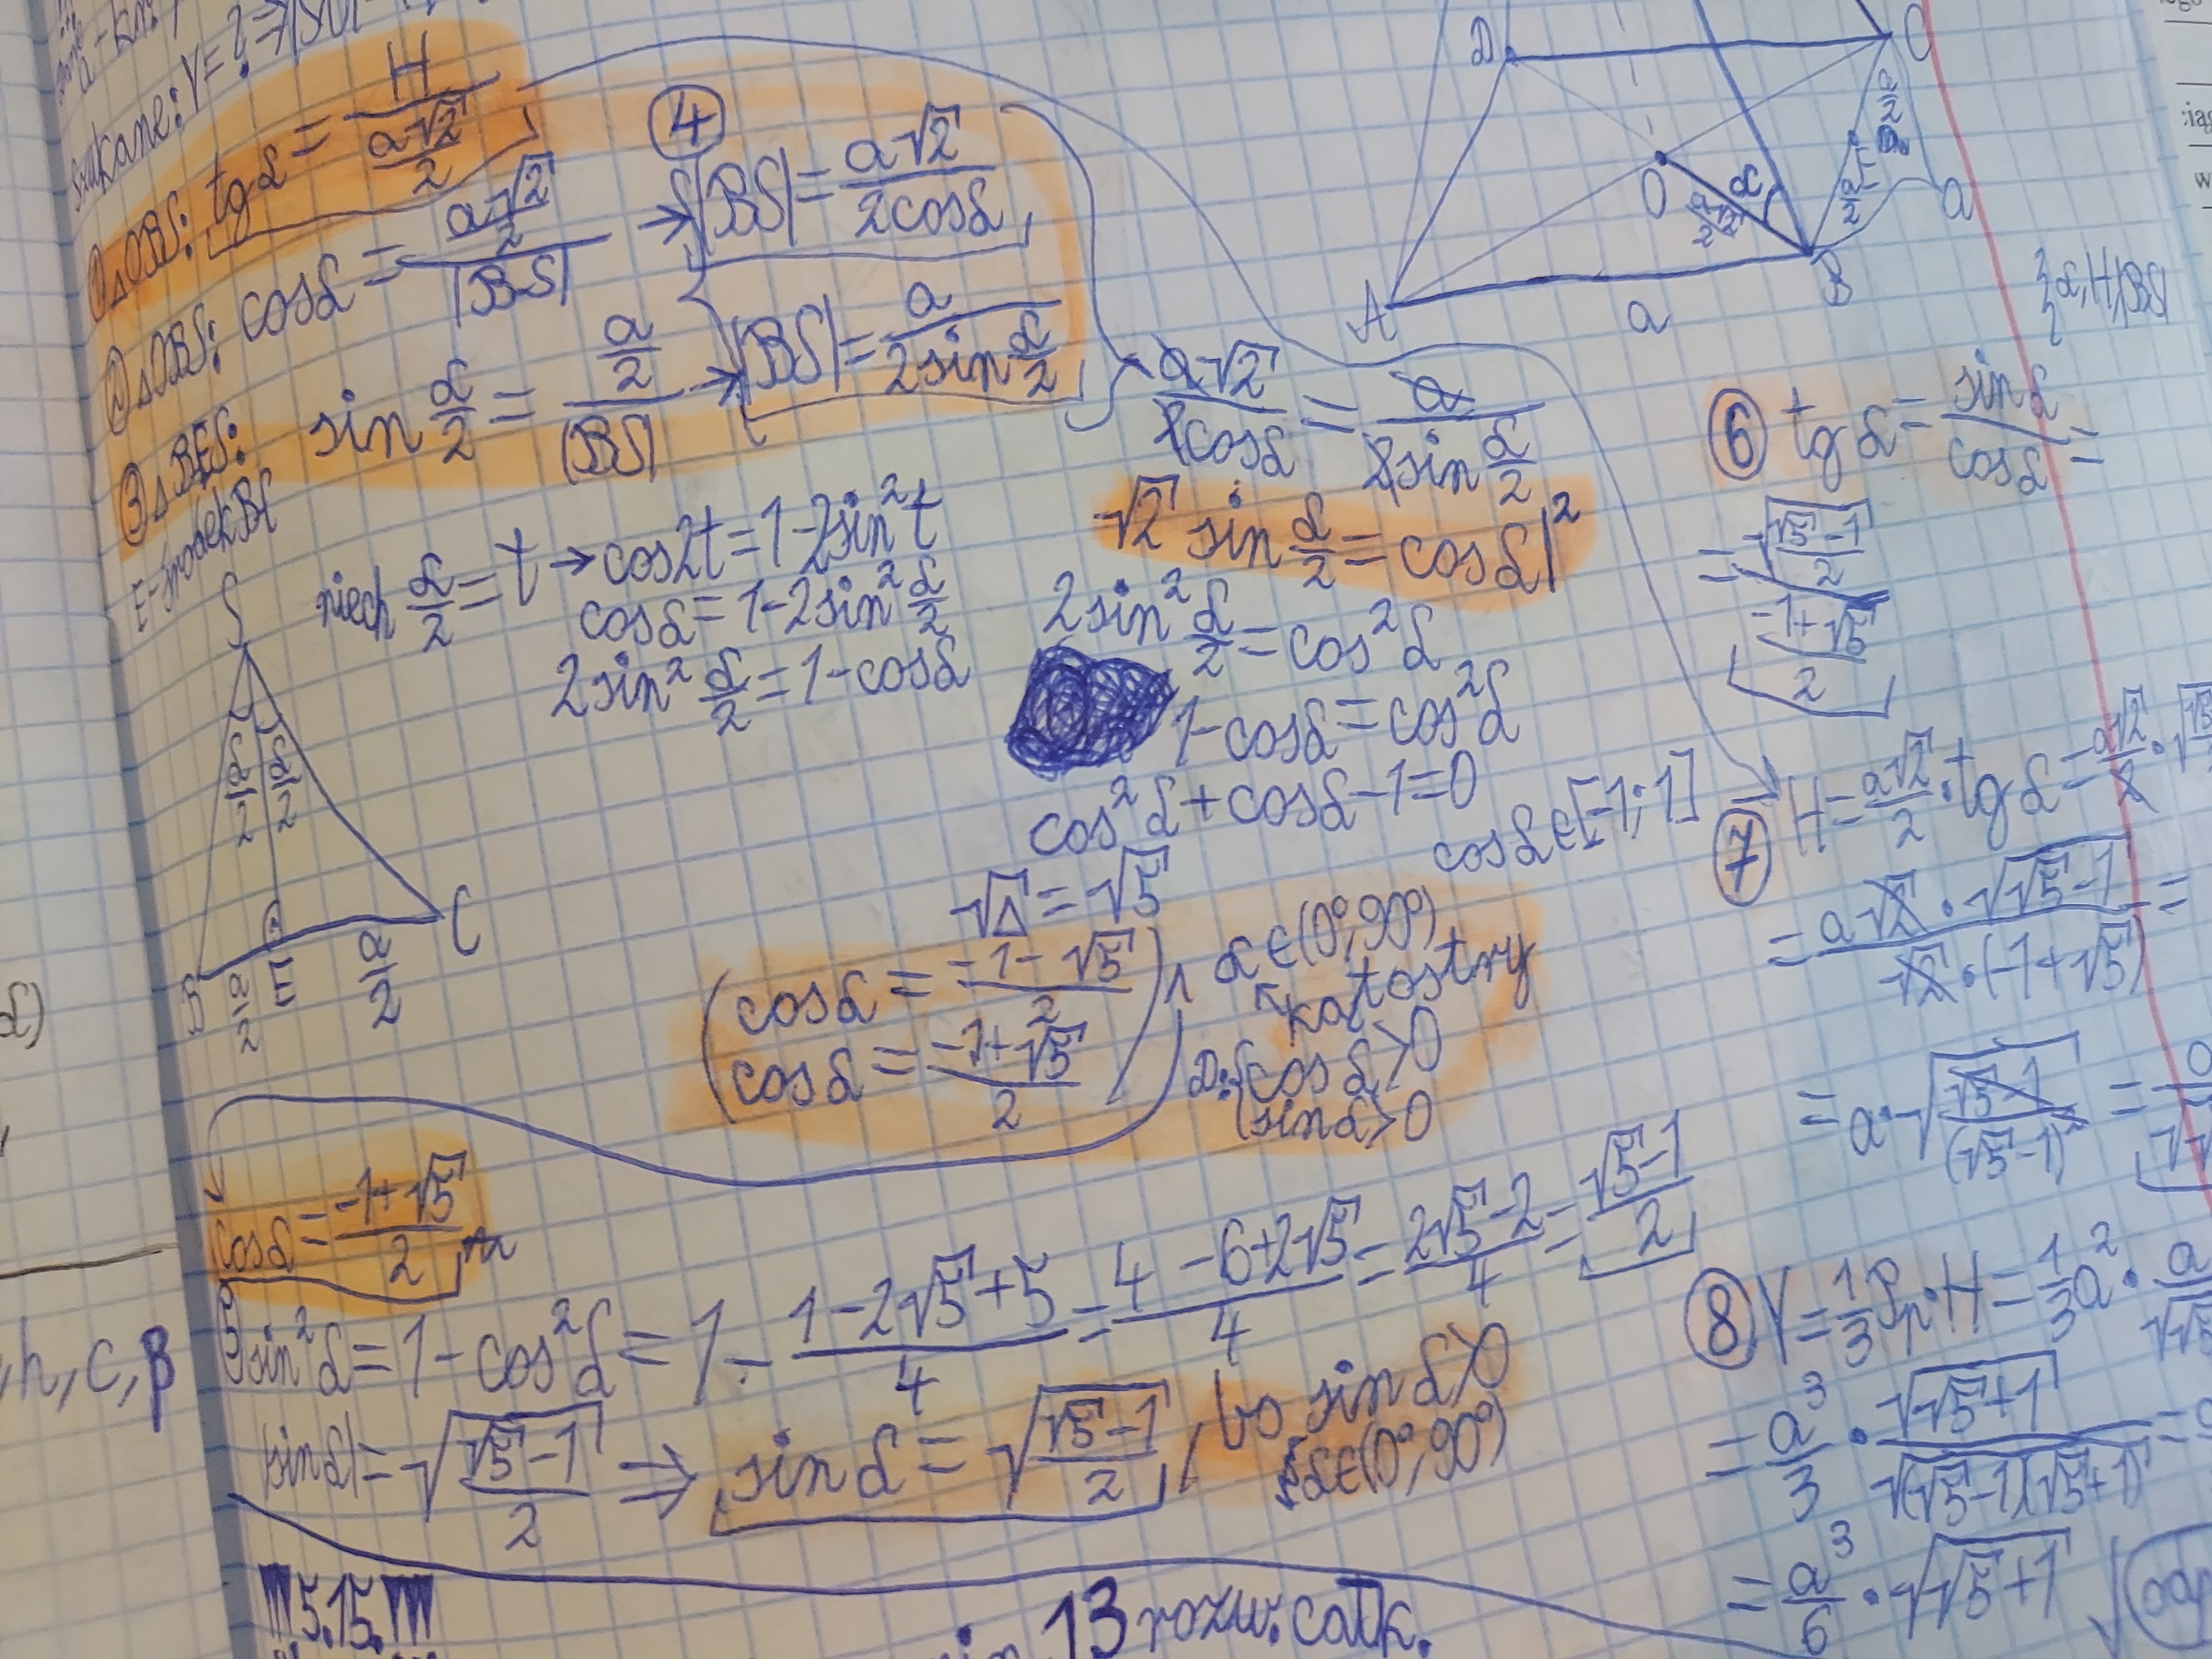 Szukane: V=?
① △OBS: tg α = H / (a√2/2)
② △OBS: cos α = (a√2/2) / |BS| → |BS| = a√2 / (2cos α)
④
③ △BES: sin α/2 = (a/2) / |BS| → |BS| = a / (2sin α/2)
E-środek BC
a√2 / (2cos α) = a / (2sin α/2)
√2 sin α/2 = cos α |²
niech α/2 = t → cos2t = 1-2sin²t
cos α = 1-2sin² α/2
2sin² α/2 = 1-cos α
2sin² α/2 = cos² α
1-cos α = cos² α
cos² α + cos α - 1 = 0
cos α ∈ [-1; 1]
√Δ = √5
(cos α = (-1-√5)/2
cos α = (-1+√5)/2) ∧ α ∈ (0°, 90°)
↖ kąt ostry
D: {cos α > 0
{sin α > 0
S
α/2 α/2
B a/2 E a/2 C
cos α = (-1+√5)/2
sin² α = 1 - cos² α = 1 - (1-2√5+5)/4 = (4-6+2√5)/4 = (2√5-2)/4 = (√5-1)/2
|sin α| = √((√5-1)/2) ⇒ sin α = √((√5-1)/2), bo sin α > 0
α ∈ (0°, 90°)
D C
O α
a√2/2
a/2 a/2 a
A a B
α, H, |BS|
⑥ tg α = sin α / cos α =
= √((√5-1)/2) / ((-1+√5)/2)
⑦ H = a√2/2 · tg α = a√2/2 ·
= a√2 · √(√5-1) / (√2 · (-1+√5)) =
= a · √((√5-1)/(√5-1)²) =
⑧ V = 1/3 Pp · H = 1/3 a² ·
= a³/3 · √(√5+1) / √((√5-1)(√5+1)) =
= a³/6 · √(√5+1)
α)
h, c, β
!!! 5.15. !!!
13 rozw. całk.